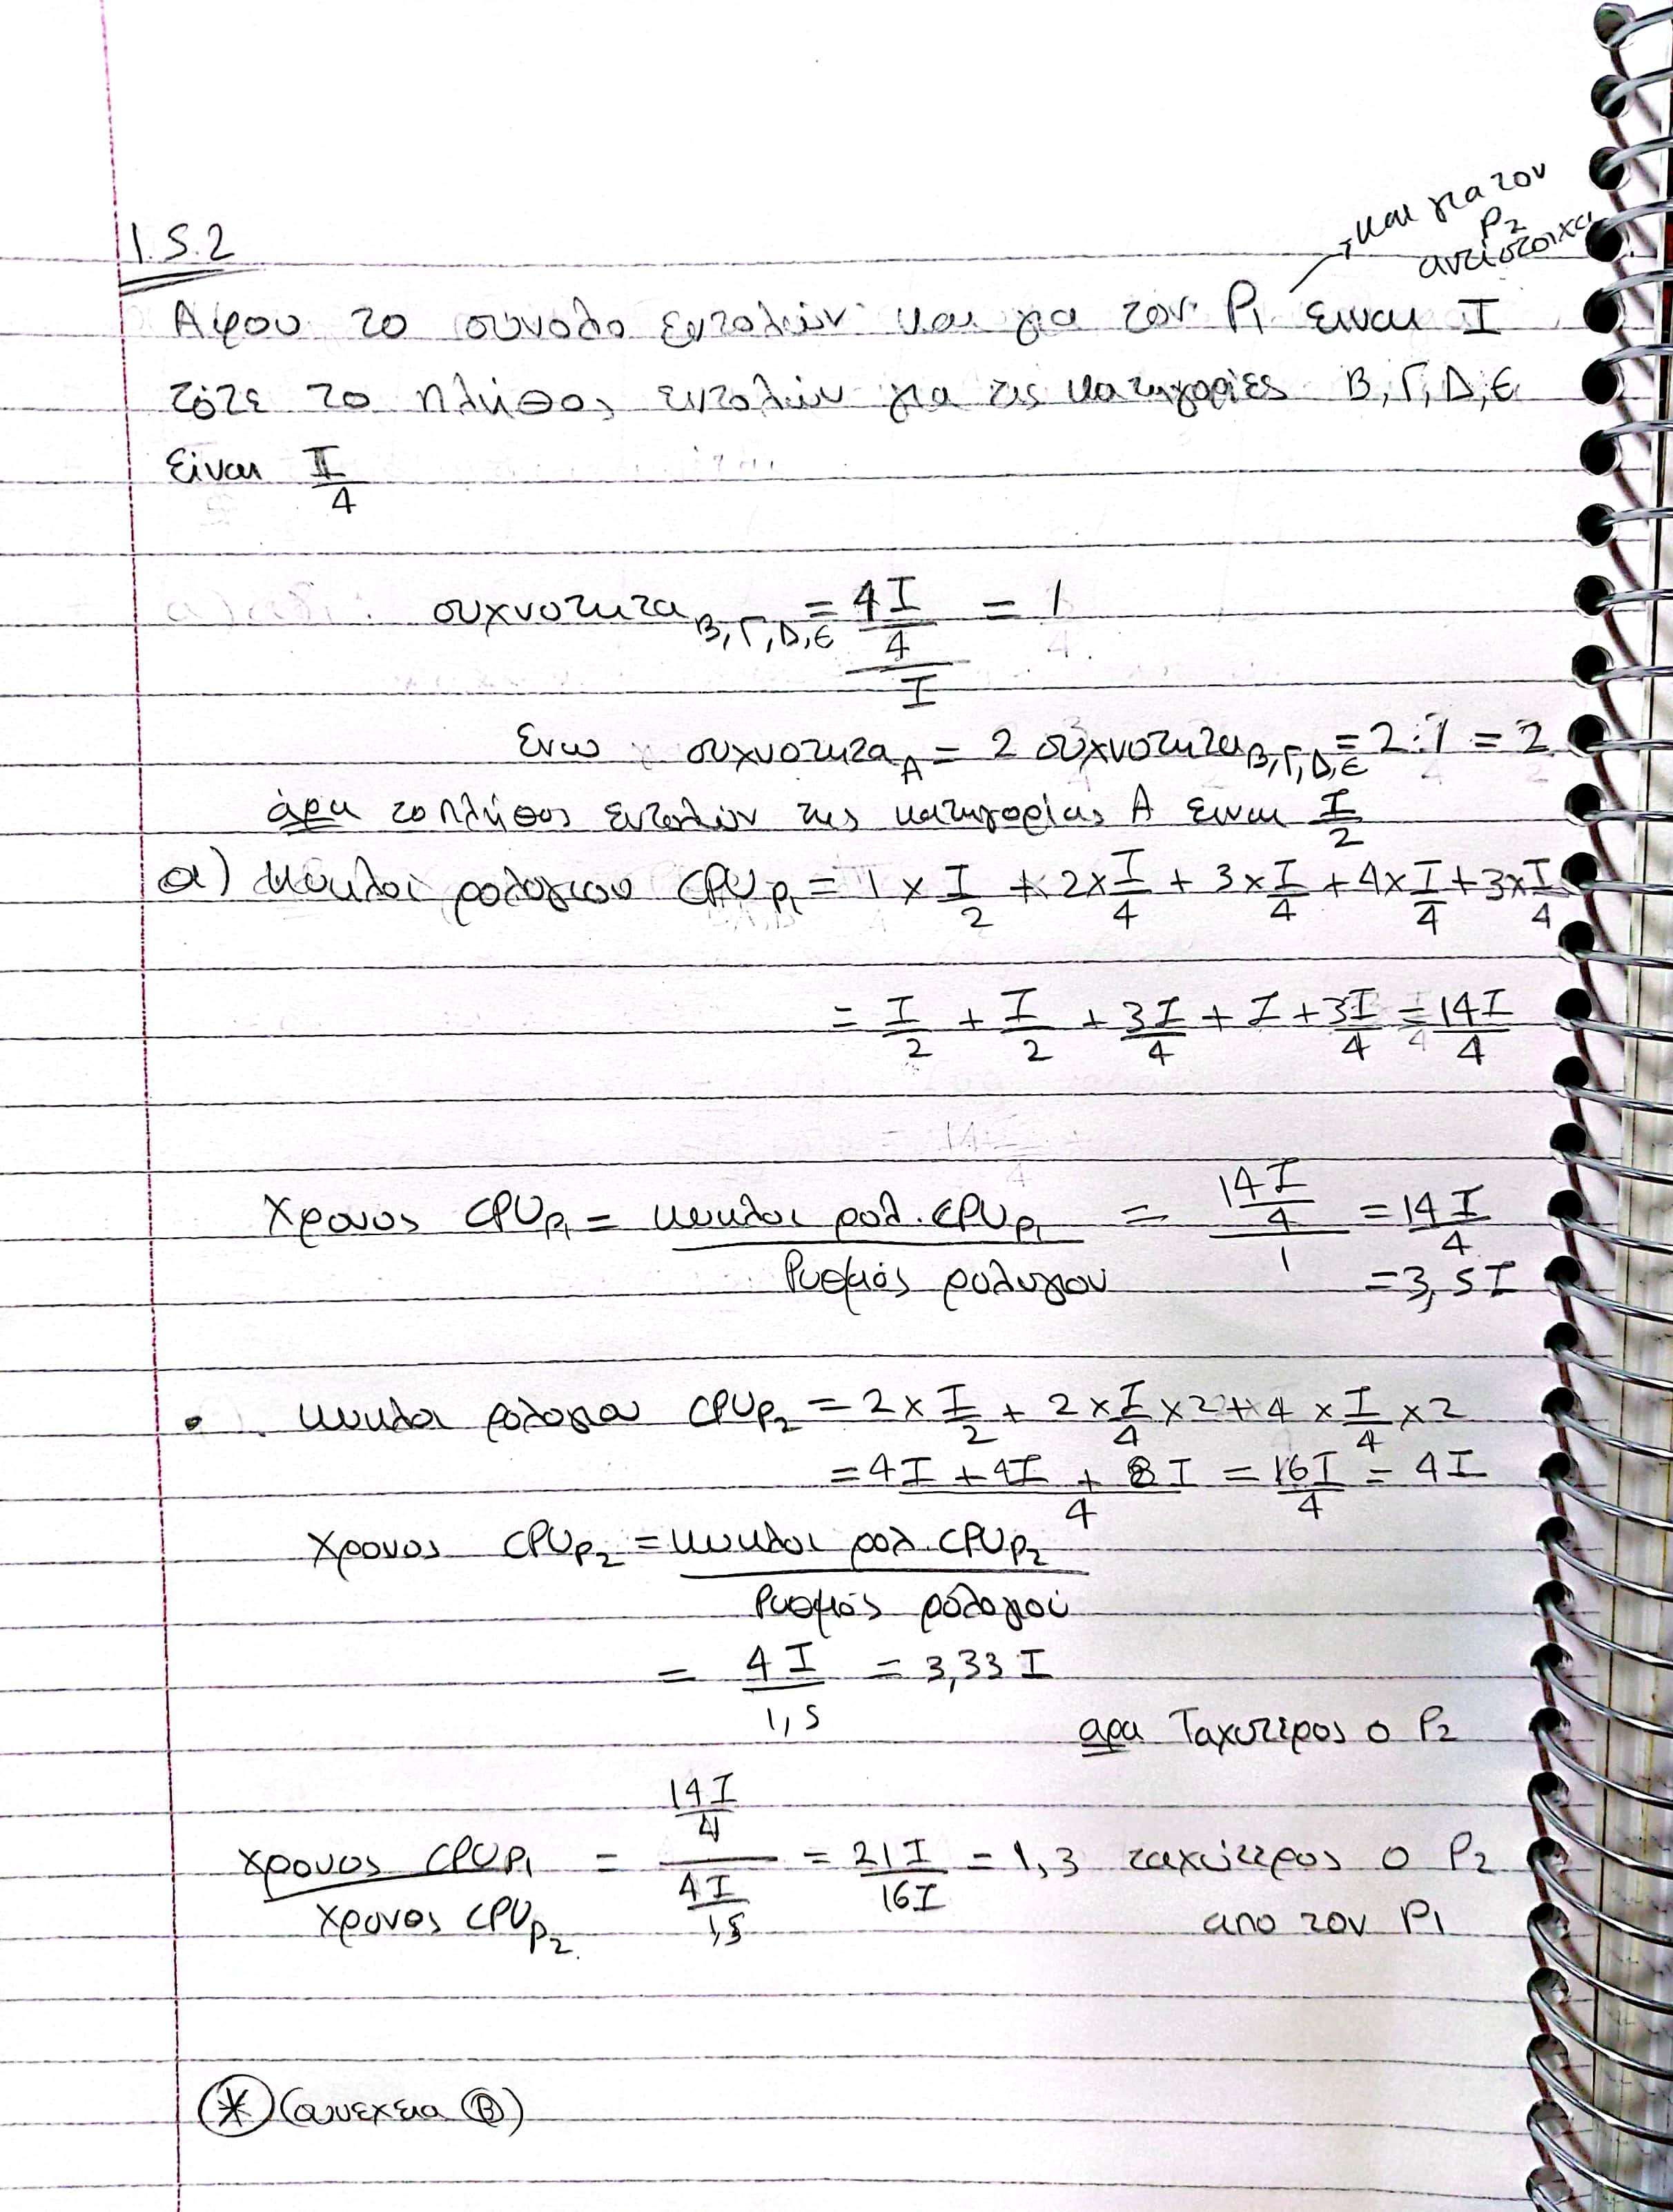 1.5.2
και για τον
P2
αντίστοιχα
Αφου το σύνολο εντολών και για τον P1 ειναι I
τότε το πλήθος εντολών για τις κατηγορίες Β, Γ, Δ, Ε
είναι I/4
συχνοτητα Β,Γ,Δ,Ε = (4I/4)/I = 1
ενω συχνοτητα A = 2 συχνοτητα Β,Γ,Δ,Ε = 2·1 = 2
άρα το πλήθος εντολών της κατηγορίας Α ειναι I/2
α) κυκλοι ρολογιου CPU P1 = 1 x I/2 + 2 x I/4 + 3 x I/4 + 4 x I/4 + 3 x I/4
= I/2 + I/2 + 3I/4 + I + 3I/4 = 14I/4
Χρονος CPU P1 = κυκλοι ρολ. CPU P1 / Ρυθμός ρολογιού = (14I/4)/1 = 14I/4
= 3,5I
• κυκλοι ρολογιου CPU P2 = 2 x I/2 + 2 x I/4 x 2 + 4 x I/4 x 2
= (4I + 4I + 8I)/4 = 16I/4 = 4I
Χρονος CPU P2 = κυκλοι ρολ. CPU P2 / Ρυθμός ρολογιού
= 4I/1,5 = 3,33 I
αρα Ταχυτερος ο P2
χρονος CPU P1 / χρονος CPU P2 = (14I/4)/(4I/1,5) = 21I/16I = 1,3 ταχύτερος ο P2
απο τον P1
* (συνεχεια Β)